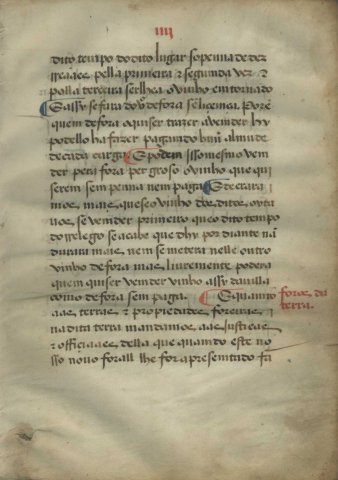 iiii
dito tempo do dito lugar so penna de dez
reaaes pella primeira & segunda vez &
polla terceira ser lhea o vinho emtornado
E assy se fara do vỹ de fora se licença. Porẽ
quem de fora o quiser trazer a vender hy
podello ha fazer pagando huũ almude
de cada carga E podem isso mesmo ven
der pera fora per grosso o vinho que qui
serem sem penna nem paga E decrara
mos mais que se o vinho dos ditos oyta
vos se vender primeiro que o dito tempo
do rrelego se acabe que dhy por diante nã
durara mais nem se metera nelle outro
vinho de fora mas livremente podera
quem quiser vender vinho assy da villa
como de fora sem paga. E quamto
aas terras & propiedades foreiras
na dita terra mandamos aas justiças
& officiaaes della que quamdo este no
sso novo forall lhe for apresemtado fa
foros da
terra.